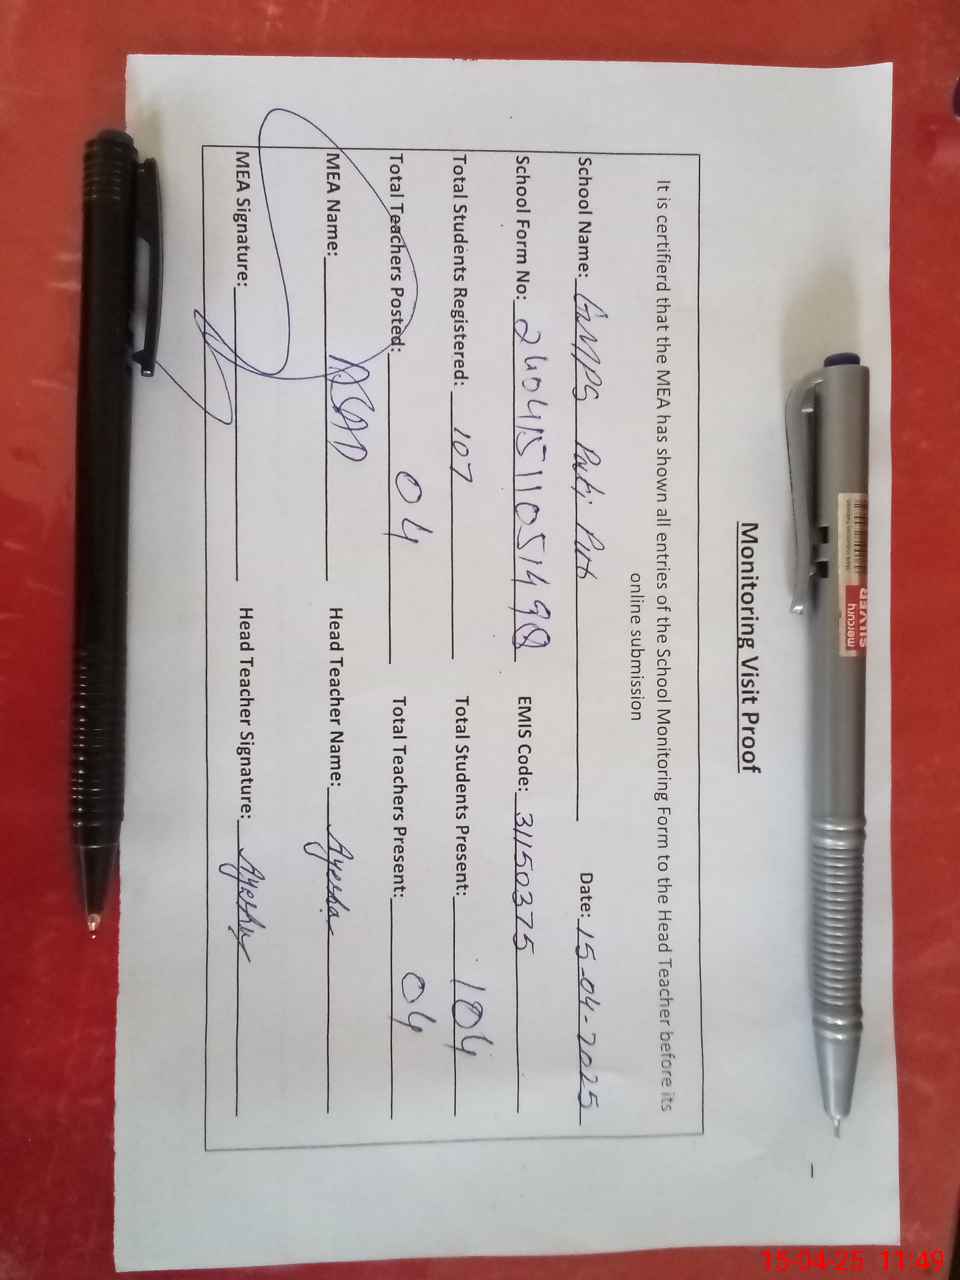 Monitoring Visit Proof
It is certifierd that the MEA has shown all entries of the School Monitoring Form to the Head Teacher before its
online submission
School Name: GMPS Date: 15-04-2025
School Form No: EMIS Code: 31150375
Total Students Registered: 107 Total Students Present: 104
Total Teachers Posted: 04 Total Teachers Present: 04
MEA Name: ASAD Head Teacher Name: Ayesha
MEA Signature: Head Teacher Signature: Ayesha
SILVER
mercury
15-04-25 11:49